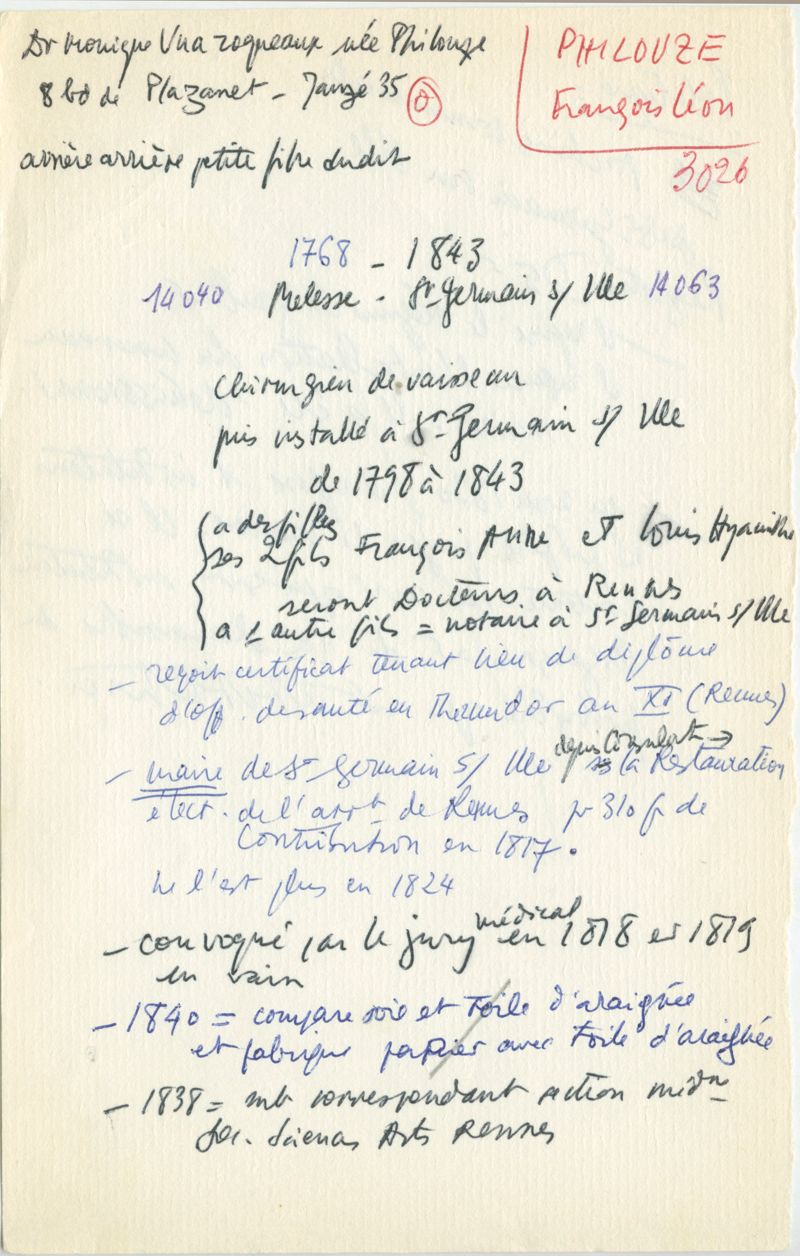 Dr Monique née Philouze
8 bd de Plazanet - Janzé 35 O
arrière arrière petite fille dudit
PHILOUZE
François Léon
3026
1768 - 1843
14040 Melesse - St Germain s/ Ille 14063
chirurgien de vaisseau
puis installé à St Germain s/ Ille
de 1798 à 1843
a des filles
ses 2 fils François Anne et Louis Hyacinthe
seront Docteurs à Rennes
a 1 autre fils = notaire à St Germain s/ Ille
- reçoit certificat tenant lieu de diplôme
d'off. de santé en Thermidor an XI (Rennes)
- maire de St Germain s/ Ille depuis Consulat → la Restauration
élect. de l'arrt de Rennes pr 310 f de
Contribution en 1817.
ne l'est plus en 1824
- convoqué par le jury médical en 1818 et 1819
en vain
- 1840 = compare soie et toile d'araignée
et fabrique papier avec toile d'araignée
- 1838 = mb correspondant section médne
Soc. Sciences Arts Rennes